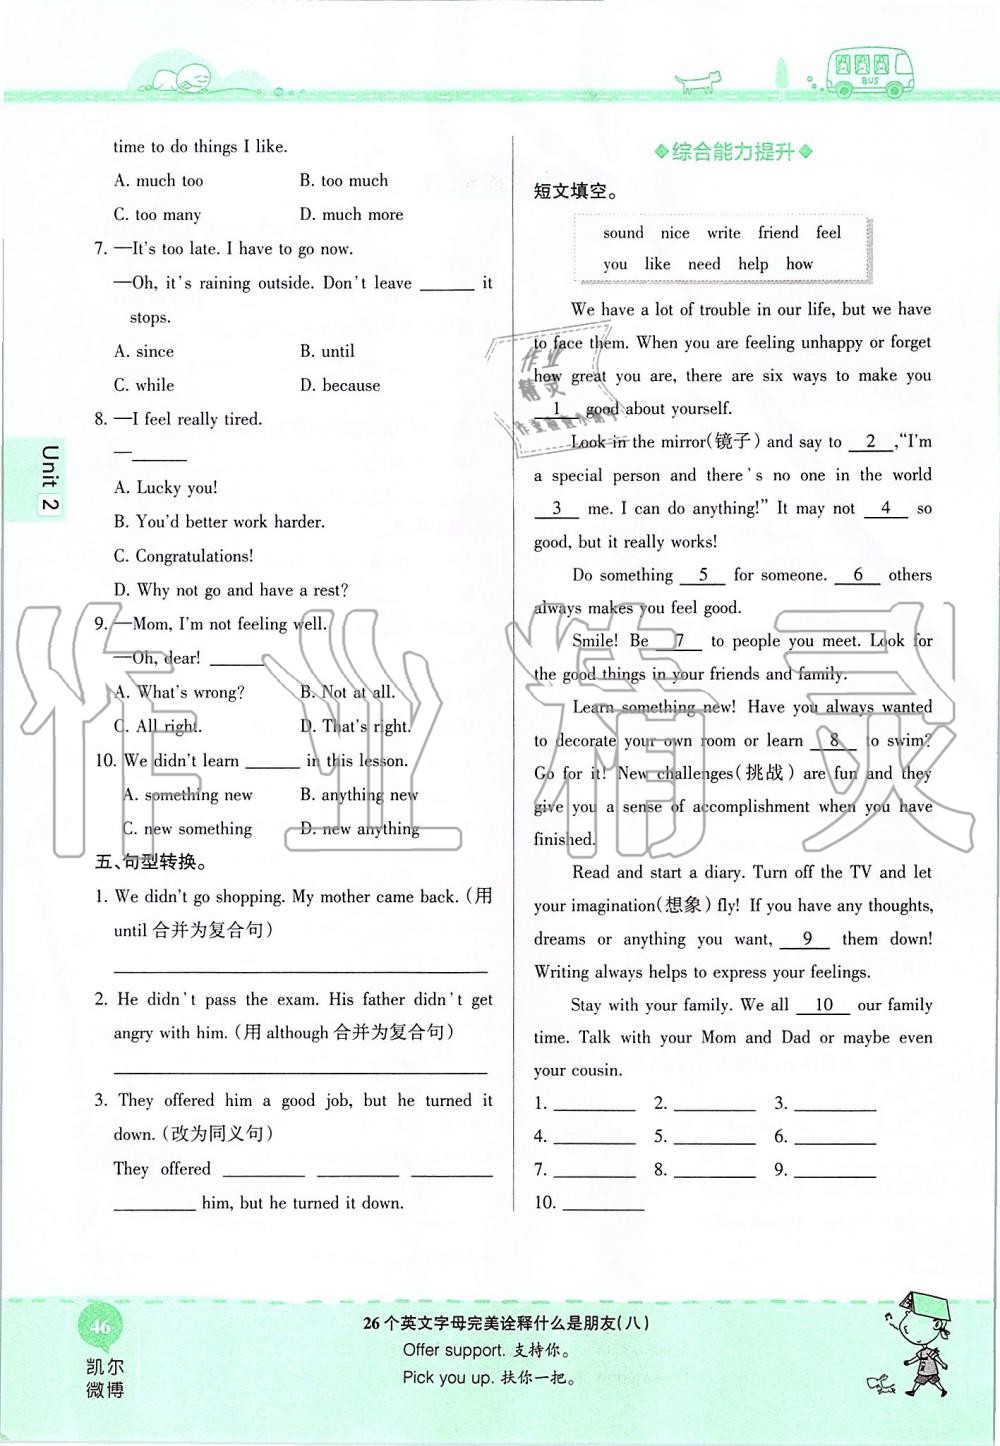 BUS
time to do things I like.
A. much too B. too much
C. too many D. much more
7. —It's too late. I have to go now.
—Oh, it's raining outside. Don't leave ______ it
stops.
A. since B. until
C. while D. because
8. —I feel really tired.
—______
A. Lucky you!
B. You'd better work harder.
C. Congratulations!
D. Why not go and have a rest?
9. —Mom, I'm not feeling well.
—Oh, dear! ______
A. What's wrong? B. Not at all.
C. All right. D. That's right.
10. We didn't learn ______ in this lesson.
A. something new B. anything new
C. new something D. new anything
五、句型转换。
1. We didn't go shopping. My mother came back.(用
until合并为复合句)
______
2. He didn't pass the exam. His father didn't get
angry with him.(用 although合并为复合句)
______
3. They offered him a good job, but he turned it
down.(改为同义句)
They offered ______ ______ ______
______ him, but he turned it down.
Unit 2
综合能力提升
短文填空。
sound nice write friend feel
you like need help how
We have a lot of trouble in our life, but we have
to face them. When you are feeling unhappy or forget
how great you are, there are six ways to make you
1 good about yourself.
Look in the mirror(镜子) and say to 2 ,“I'm
a special person and there's no one in the world
3 me. I can do anything!” It may not 4 so
good, but it really works!
Do something 5 for someone. 6 others
always makes you feel good.
Smile! Be 7 to people you meet. Look for
the good things in your friends and family.
Learn something new! Have you always wanted
to decorate your own room or learn 8 to swim?
Go for it! New challenges(挑战) are fun and they
give you a sense of accomplishment when you have
finished.
Read and start a diary. Turn off the TV and let
your imagination(想象) fly! If you have any thoughts,
dreams or anything you want, 9 them down!
Writing always helps to express your feelings.
Stay with your family. We all 10 our family
time. Talk with your Mom and Dad or maybe even
your cousin.
1. ______ 2. ______ 3. ______
4. ______ 5. ______ 6. ______
7. ______ 8. ______ 9. ______
10. ______
作业
精灵
作业精灵
46
凯尔
微博
26个英文字母完美诠释什么是朋友(八)
Offer support. 支持你。
Pick you up. 扶你一把。